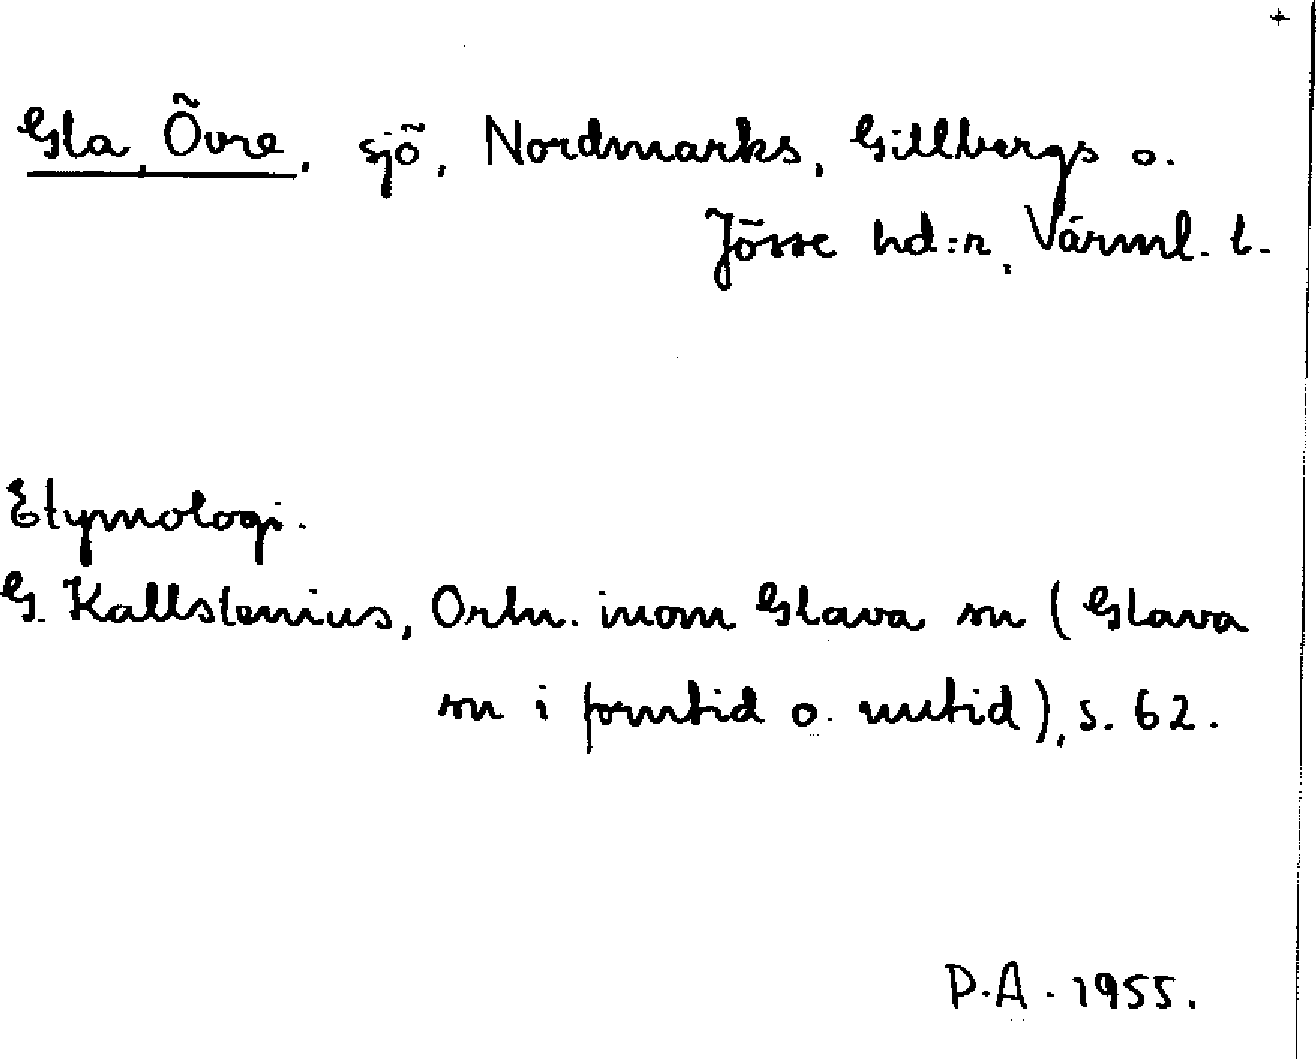 +
Gla, Övre, sjö, Nordmarks, Gillbergs o.
Jösse hd:r, Värml. l.
Etymologi.
G. Kallstenius, Ortn. inom Glava sn (Glava
sn i forntid o. nutid), s. 62.
P.A. 1955.